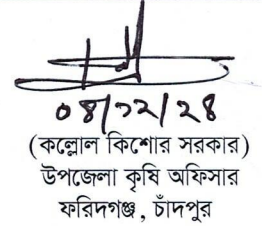 ০৪/১২/২৪
(কল্লোল কিশোর সরকার)
উপজেলা কৃষি অফিসার
ফরিদগঞ্জ, চাঁদপুর